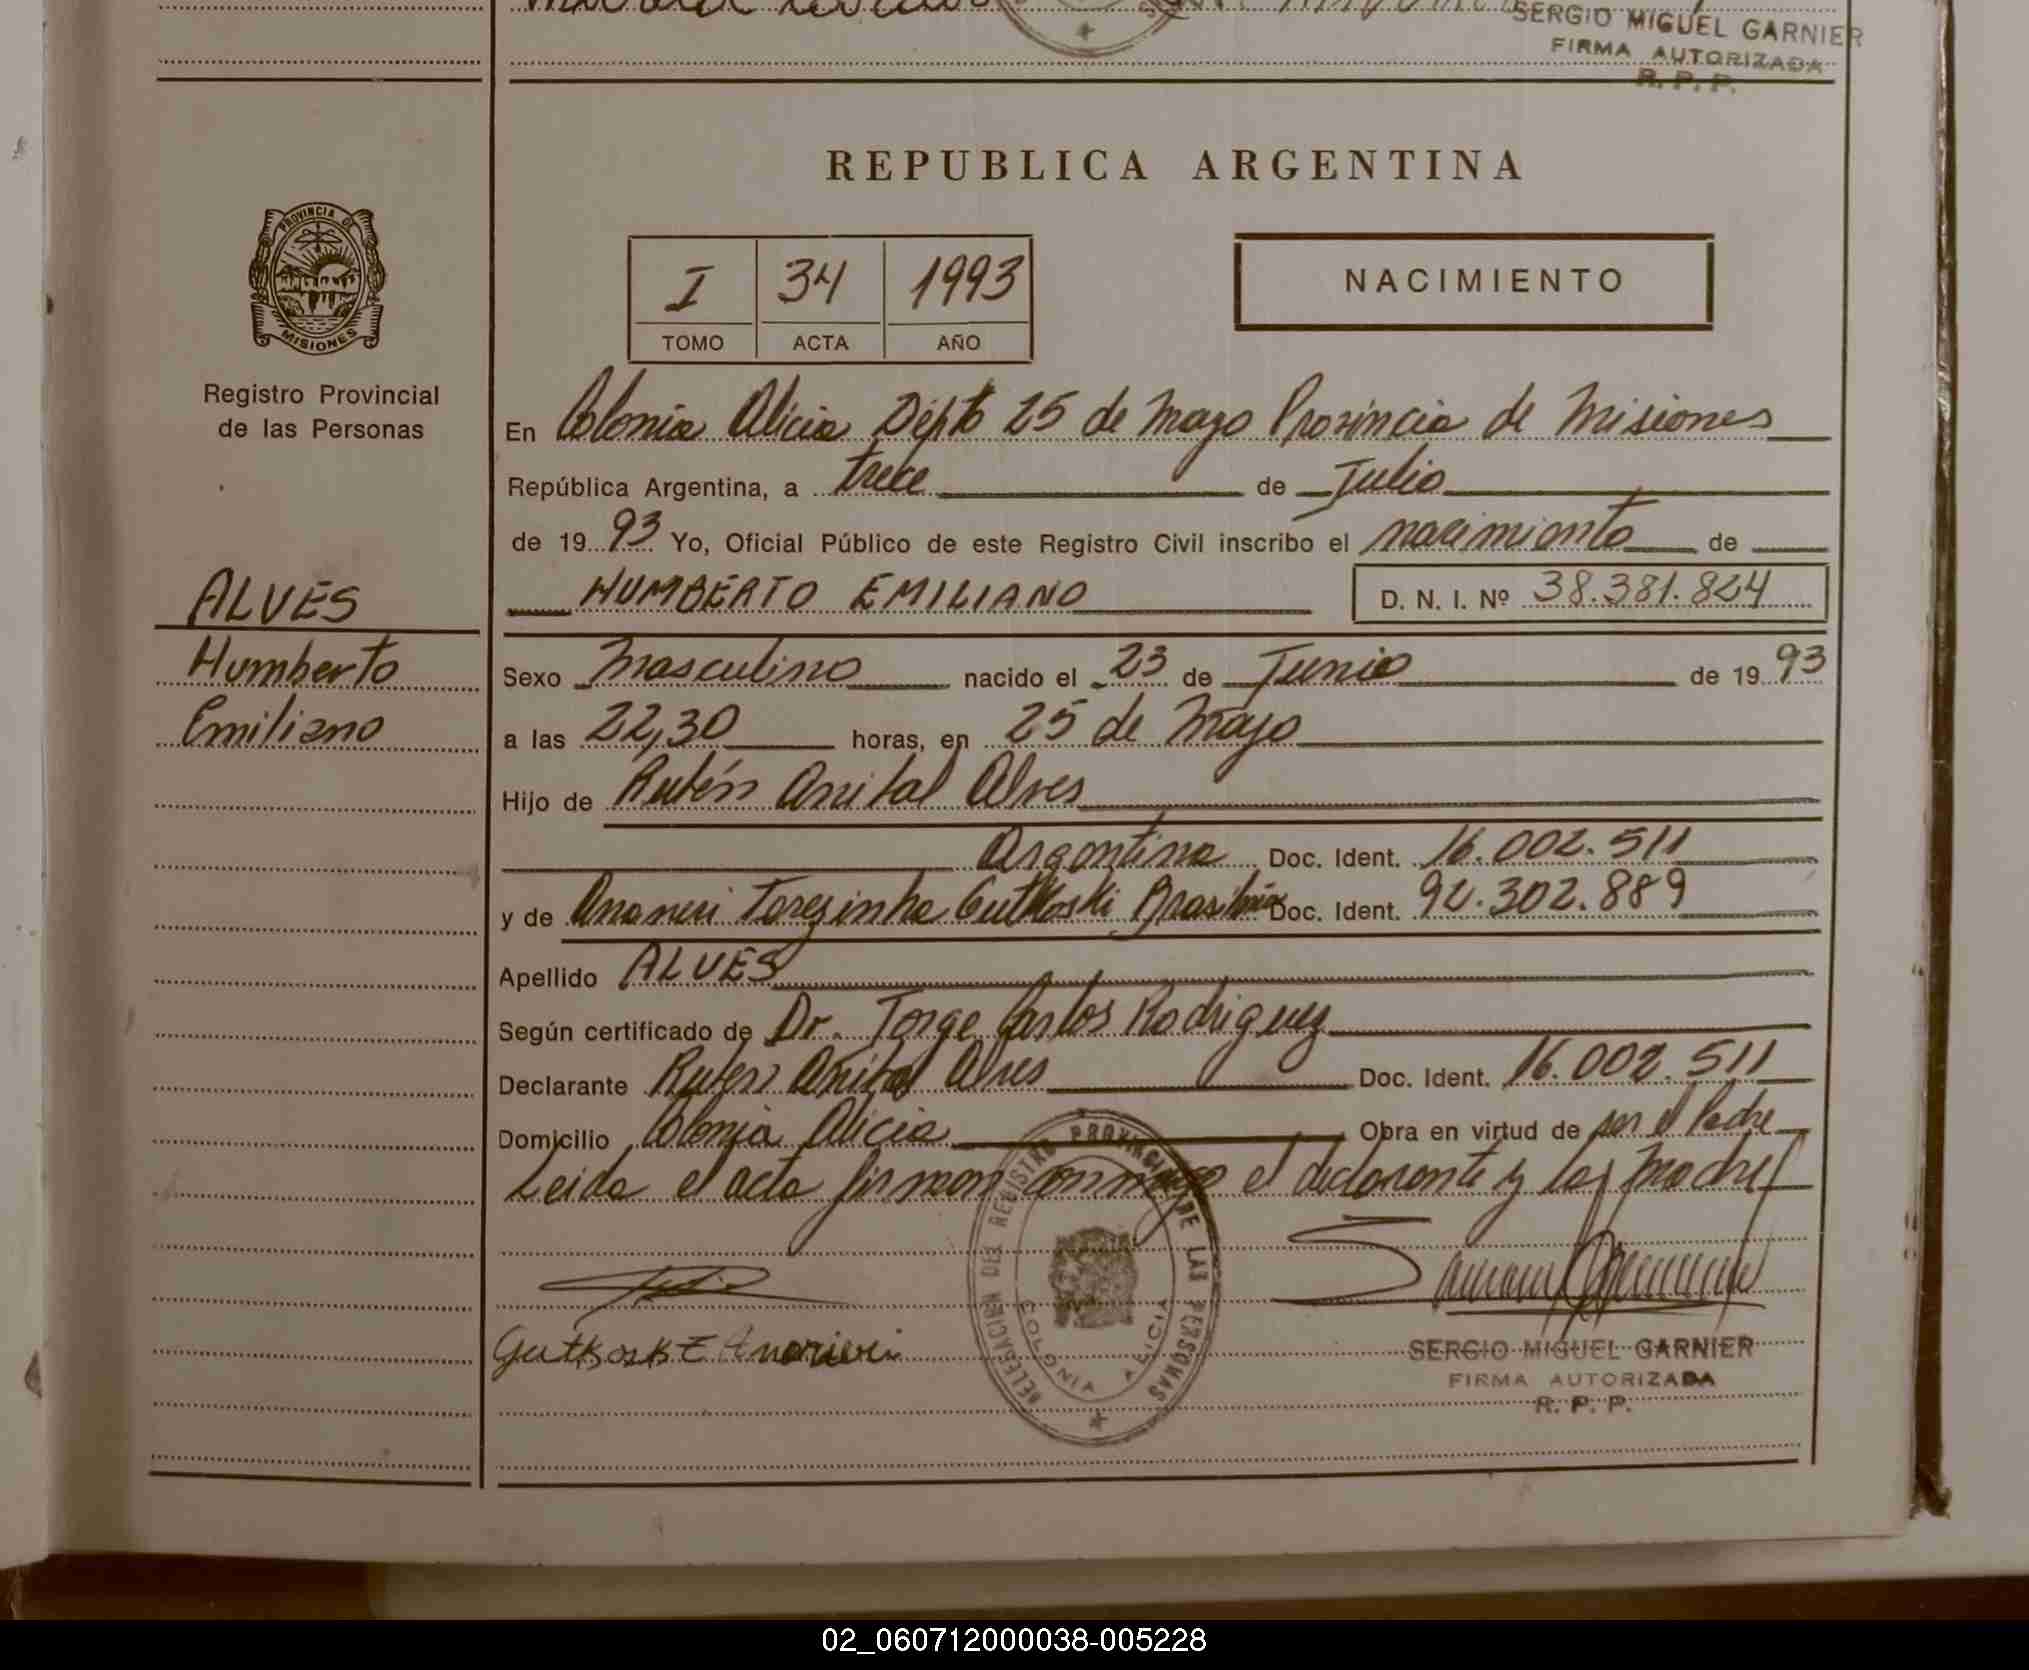 SERGIO MIGUEL GARNIER
FIRMA AUTORIZADA
R. P. P.
REPUBLICA ARGENTINA
PROVINCIA DE
MISIONES
Registro Provincial
de las Personas
I 34 1993
TOMO ACTA AÑO
NACIMIENTO
En Colonia Alicia Dépto 25 de Mayo Provincia de Misiones
República Argentina, a trece de Julio
de 19 93 Yo, Oficial Público de este Registro Civil inscribo el nacimiento de
ALVES
Humberto
Emiliano
HUMBERTO EMILIANO D. N. I. Nº 38.381.824
Sexo Masculino nacido el 23 de Junio de 19 93
a las 22,30 horas, en 25 de Mayo
Hijo de Rubén Anibal Alves
Argentino Doc. Ident. 16.002.511
y de Ananeri Terezinha Gutkoski Doc. Ident. 92.302.889
Apellido ALVES
Según certificado de Dr. Jorge Carlos Rodriguez
Declarante Ruben Anibal Alves Doc. Ident. 16.002.511
Domicilio Colonia Alicia Obra en virtud de ser el Padre
Leida el acta firman conmigo el declarante y la madre
DELEGACION DEL REGISTRO PROVINCIAL DE LAS PERSONAS
COLONIA ALICIA
SERGIO MIGUEL GARNIER
FIRMA AUTORIZADA
R. P. P.
02_060712000038-005228